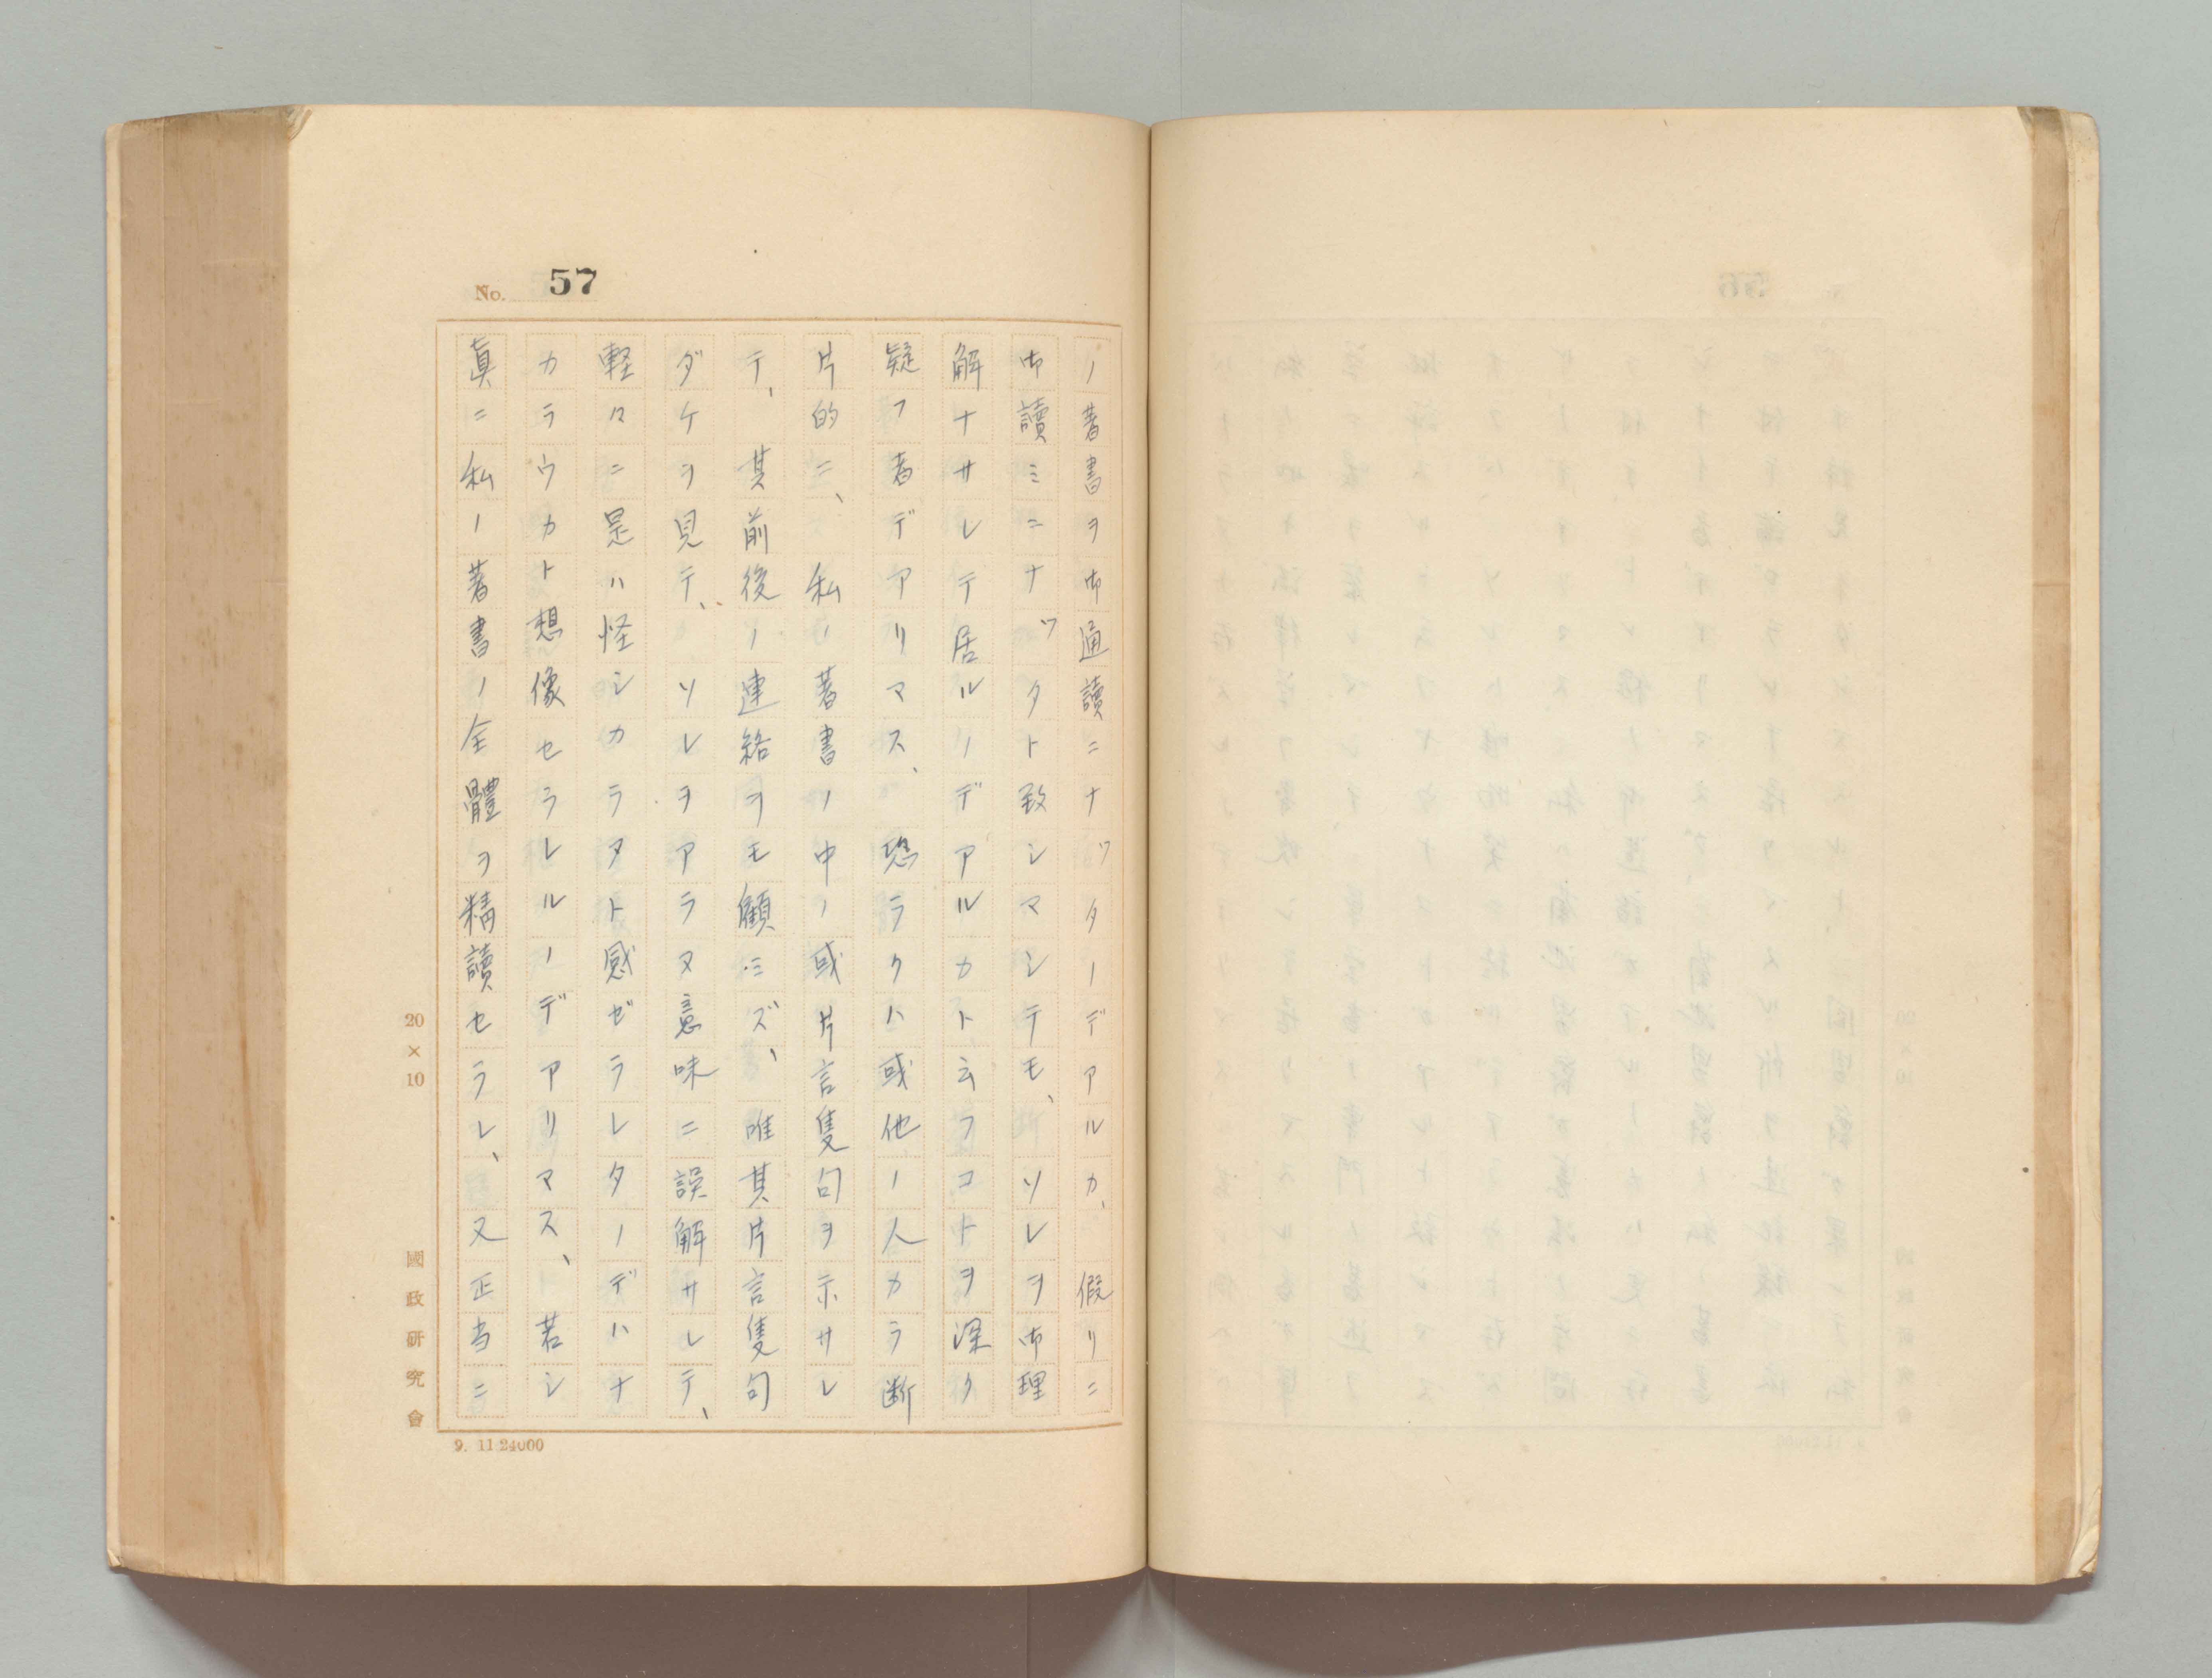 No. 57
ノ著書ヲ御通讀ニナツタノデアルカ、假リニ
御讀ミニナツタト致シマシテモ、ソレヲ御理
解ナサレテ居ルノデアルカト云フコトヲ深ク
疑フ者デアリマス、恐ラクハ或他ノ人カラ断
片的ニ、私ノ著書ノ中ノ或片言隻句ヲ示サレ
テ、其前後ノ連絡ヲモ顧ミズ、唯其片言隻句
ダケヲ見テ、ソレヲアラヌ意味ニ誤解サレテ、
軽々ニ是ハ怪シカラヌト感ゼラレタノデハナ
カラウカト想像セラレルノデアリマス、若シ
眞ニ私ノ著書ノ全體ヲ精讀セラレ、又正当ニ
20×10
國政研究會
9. 11 24000